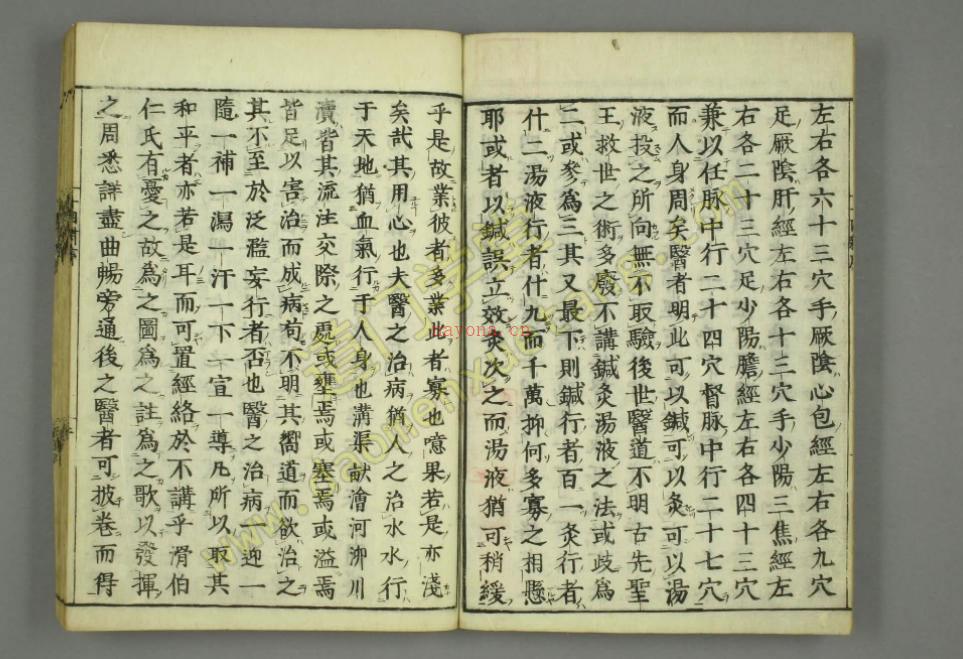 左右各六十三穴手厥陰心包經左右各九穴
足厥陰肝經左右各十三穴手少陽三焦經左
右各二十三穴足少陽膽經左右各四十三穴
兼以任脉中行二十四穴督脉中行二十七穴
而人身周矣醫者明此可以鍼可以灸可以湯
液投之所向無不取驗後世醫道不明古先聖
王救世之術多廢不講鍼灸湯液之法或歧爲
二或參爲三其又最下則鍼行者百一灸行者
什二湯液行者什九而千萬抑何多寡之相懸
耶或者以鍼誤立效灸次之而湯液猶可稍緩
乎是故業彼者多業此者寡也噫果若是亦淺
矣哉其用心也夫醫之治病猶人之治水水行
于天地猶血氣行于人身也溝渠畎澮河泖川
瀆皆其流注交際之處或壅焉或塞焉或溢焉
皆足以害治而成病苟不明其嚮道而欲治之
其不至於泛濫妄行者否也醫之治病一迎一
隨一補一瀉一汗一下一宣一導凡所以取其
和平者亦若是耳而可置經絡於不講乎滑伯
仁氏有憂之故爲之圖爲之註爲之歌以發揮
之周悉詳盡曲暢旁通後之醫者可披卷而得
hayona.cn